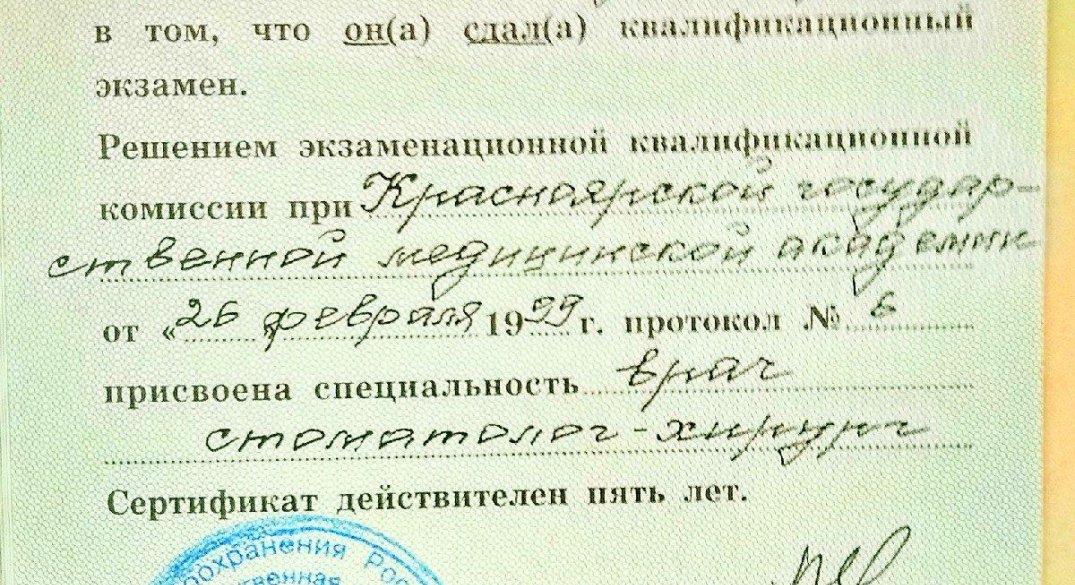 в том, что он(а) сдал(а) квалификационный
экзамен.
Решением экзаменационной квалификационной
комиссии при Красноярской государ-
ственной медицинской академии
от «26 февраля 1999 г. протокол № 6
присвоена специальность врач
стоматолог-хирург
Сертификат действителен пять лет.
охранения Рос
венная